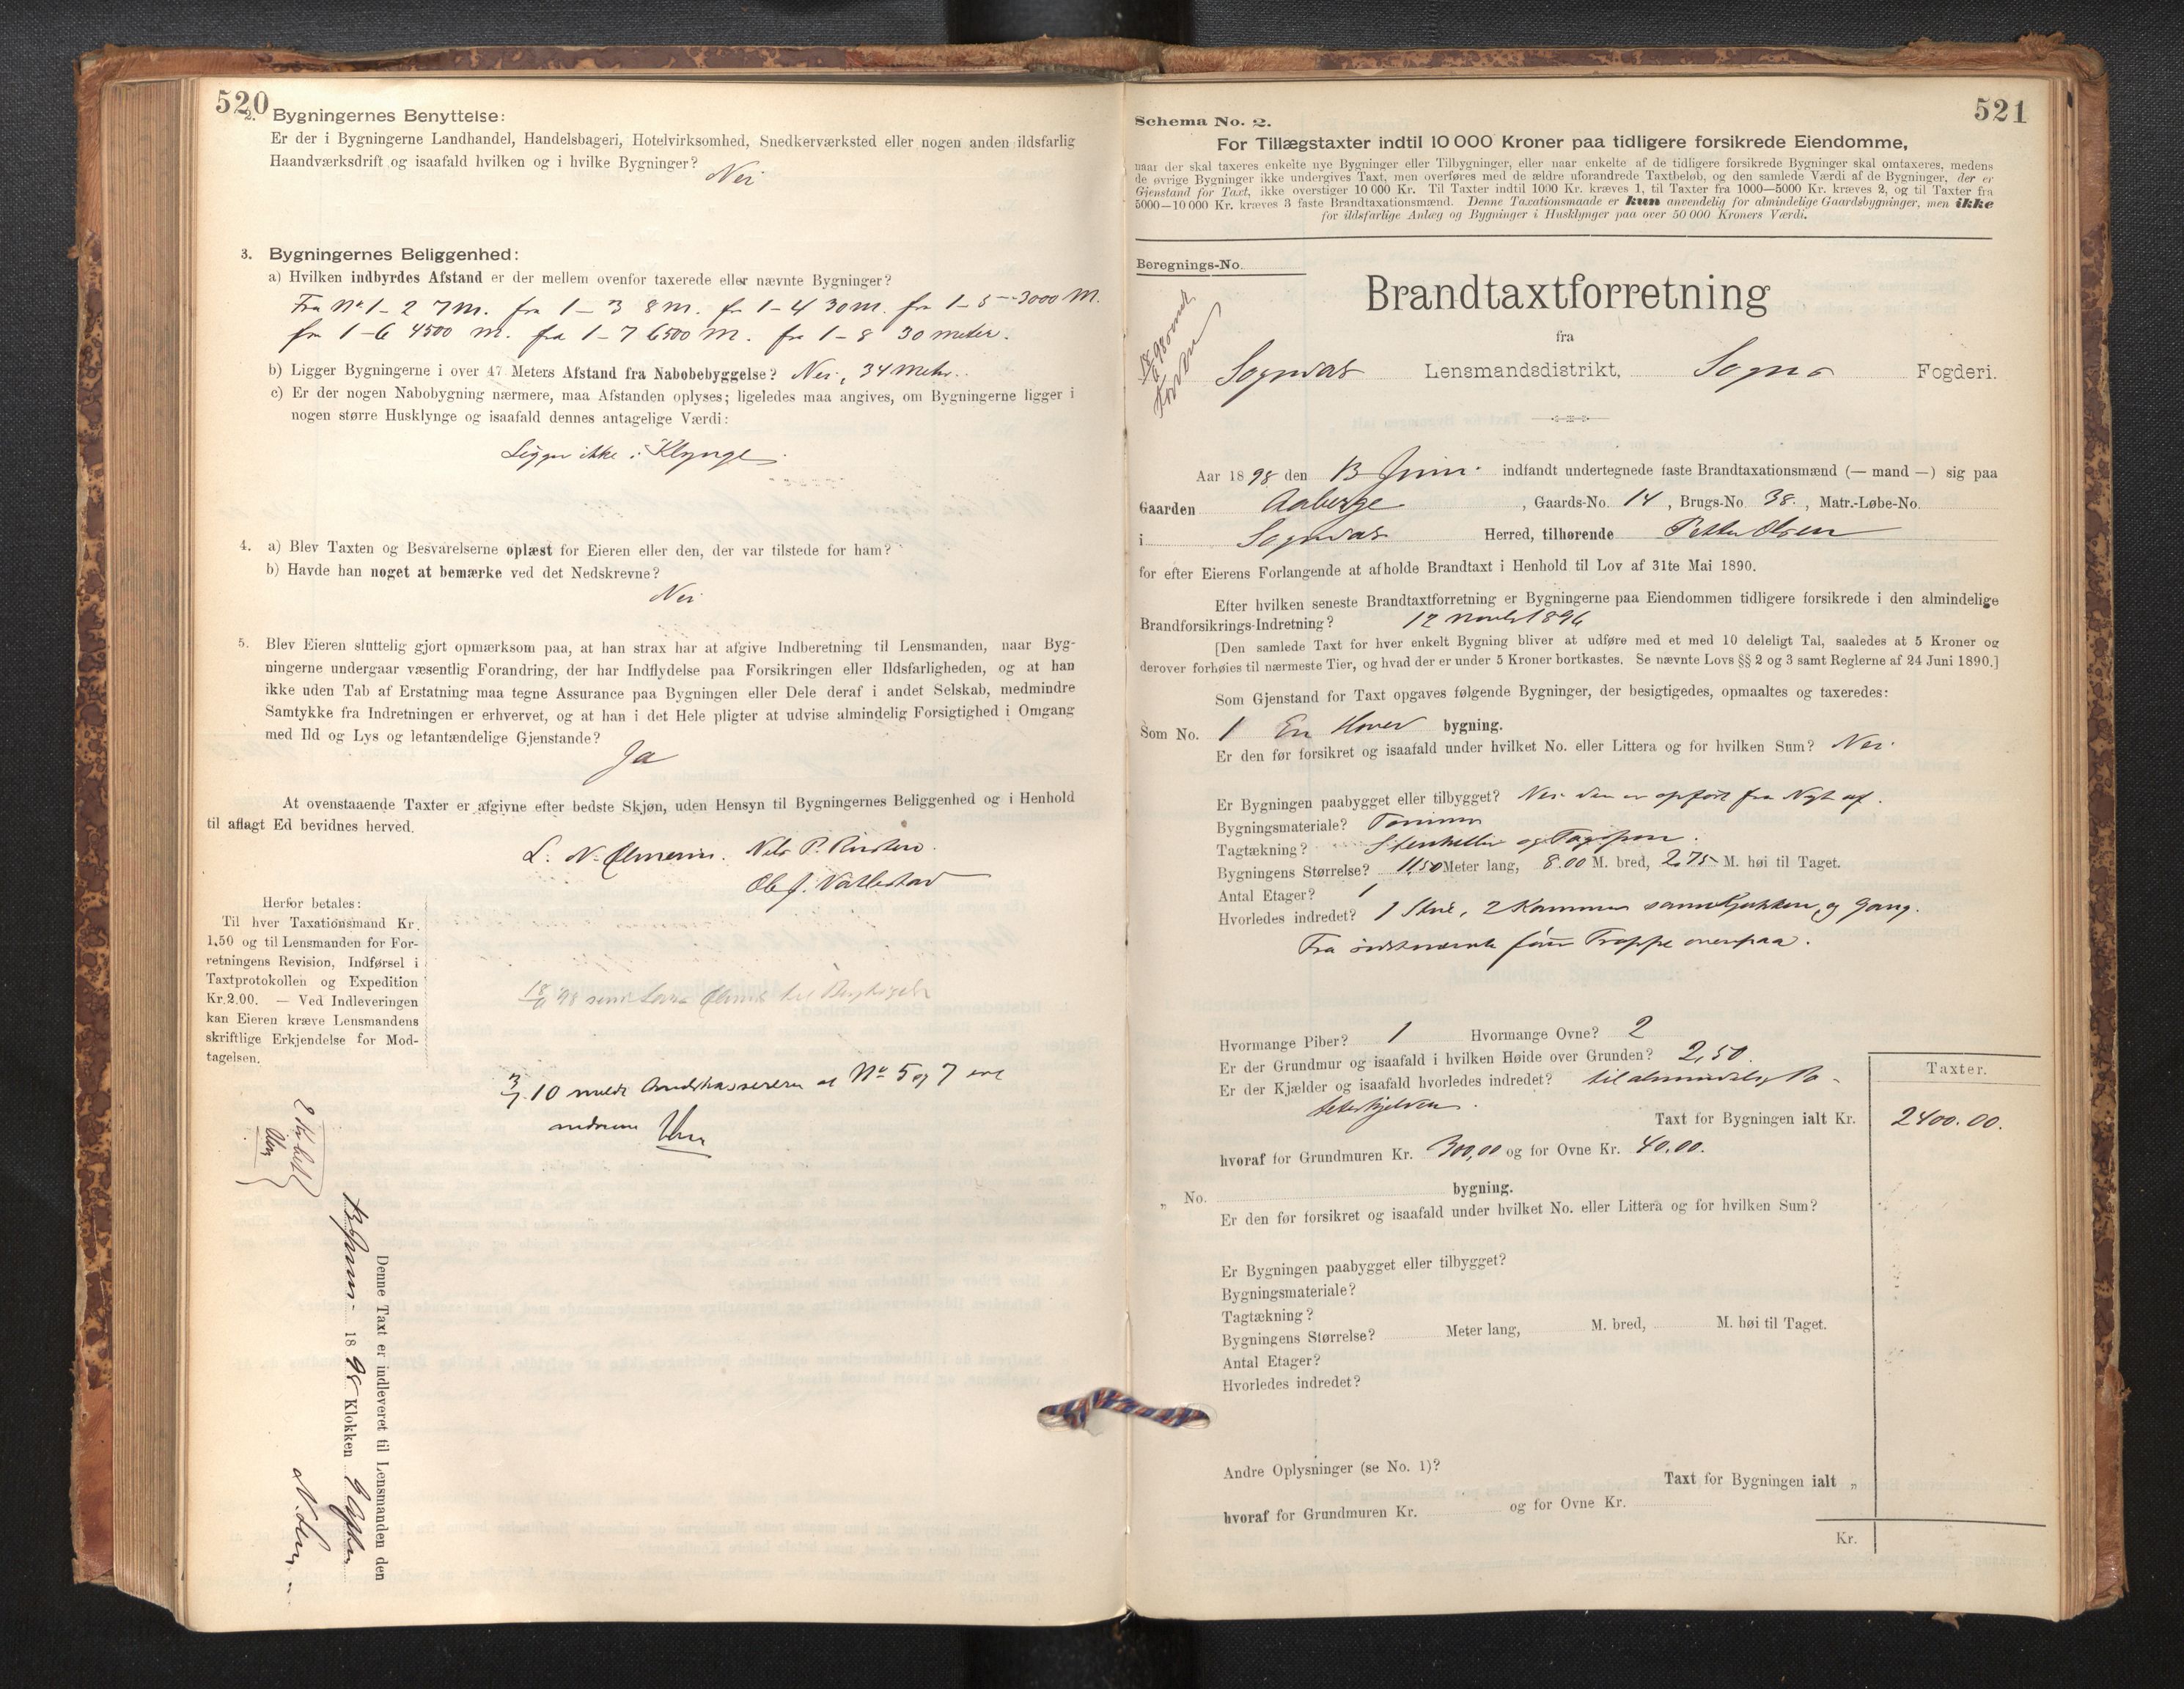 520
2. Bygningernes Benyttelse:
Er der i Bygningerne Landhandel, Handelsbageri, Hotelvirksomhed, Snedkerværksted eller nogen anden ildsfarlig
Haandværksdrift og isaafald hvilken og i hvilke Bygninger?
Nei
3. Bygningernes Beliggenhed:
a) Hvilken indbyrdes Afstand er der mellem ovenfor taxerede eller nævnte Bygninger?
Fra No 1 - 2 7 M. fra 1 - 3 8 M. fra 1 - 4 30 M. fra 1 - 5 - 3000 M.
fra 1 - 6 4500 M. fra 1 - 7 6500 M. fra 1 - 8 30 meter.
b) Ligger Bygningerne i over 47 Meters Afstand fra Nabobebyggelse? Nei, 34 Meter.
c) Er der nogen Nabobygning nærmere, maa Afstanden oplyses; ligeledes maa angives, om Bygningerne ligger i
nogen større Husklynge og isaafald dennes antagelige Værdi:
Ligger ikke i Klynge.
4. a) Blev Taxten og Besvarelserne oplæst for Eieren eller den, der var tilstede for ham?
b) Havde han noget at bemærke ved det Nedskrevne?
Nei
5. Blev Eieren sluttelig gjort opmærksom paa, at han strax har at afgive Indberetning til Lensmanden, naar Byg-
ningerne undergaar væsentlig Forandring, der har Indflydelse paa Forsikringen eller Ildsfarligheden, og at han
ikke uden Tab af Erstatning maa tegne Assurance paa Bygningen eller Dele deraf i andet Selskab, medmindre
Samtykke fra Indretningen er erhvervet, og at han i det Hele pligter at udvise almindelig Forsigtighed i Omgang
med Ild og Lys og letantændelige Gjenstande?
Ja
At ovenstaaende Taxter er afgivne efter bedste Skjøn, uden Hensyn til Bygningernes Beliggenhed og i Henhold
til aflagt Ed bevidnes herved.
L. N. Nels P.
Ole J.
Herfor betales:
Til hver Taxationsmand Kr.
1,50 og til Lensmanden for For-
retningens Revision, Indførsel i
Taxtprotokollen og Expedition
Kr. 2.00. — Ved Indleveringen
kan Eieren kræve Lensmandens
skriftlige Erkjendelse for Mod-
tagelsen.
18/6 98
3/7 10 No 5 og 7
Denne Taxt er indleveret til Lensmanden den
Juni 1898 Klokken
521
Schema No. 2.
For Tillægstaxter indtil 10 000 Kroner paa tidligere forsikrede Eiendomme,
naar der skal taxeres enkelte nye Bygninger eller Tilbygninger, eller naar enkelte af de tidligere forsikrede Bygninger skal omtaxeres, medens
de øvrige Bygninger ikke undergives Taxt, men overføres med de ældre uforandrede Taxtbeløb, og den samlede Værdi af de Bygninger, der er
Gjenstand for Taxt, ikke overstiger 10 000 Kr. Til Taxter indtil 1000 Kr. kræves 1, til Taxter fra 1000—5000 Kr. kræves 2, og til Taxter fra
5000—10 000 Kr. kræves 3 faste Brandtaxationsmænd. Denne Taxationsmaade er kun anvendelig for almindelige Gaardsbygninger, men ikke
for ildsfarlige Anlæg og Bygninger i Husklynger paa over 50 000 Kroners Værdi.
Beregnings-No.
Brandtaxtforretning
fra
Sogndal Lensmandsdistrikt, Sogns Fogderi.
Aar 1898 den 13 Juni indfandt undertegnede faste Brandtaxationsmænd (— mand —) sig paa
Gaarden Aaberge, Gaards-No. 14, Brugs-No. 38., Matr.-Løbe-No.
i Sogndal Herred, tilhørende Petter Olsen
for efter Eierens Forlangende at afholde Brandtaxt i Henhold til Lov af 31te Mai 1890.
Efter hvilken seneste Brandtaxtforretning er Bygningerne paa Eiendommen tidligere forsikrede i den almindelige
Brandforsikrings-Indretning? 12 1896
[Den samlede Taxt for hver enkelt Bygning bliver at udføre med et med 10 deleligt Tal, saaledes at 5 Kroner og
derover forhøies til nærmeste Tier, og hvad der er under 5 Kroner bortkastes. Se nævnte Lovs §§ 2 og 3 samt Reglerne af 24 Juni 1890.]
Som Gjenstand for Taxt opgaves følgende Bygninger, der besigtigedes, opmaaltes og taxeredes:
Som No. 1 En Hoved bygning.
Er den før forsikret og isaafald under hvilket No. eller Littera og for hvilken Sum? Nei
Er Bygningen paabygget eller tilbygget? Nei den er opført fra Nyt af.
Bygningsmateriale? Tømmer
Tagtækning? Stenheller og Tagspon.
Bygningens Størrelse? 11.50 Meter lang, 8.00 M. bred, 2,75 M. høi til Taget.
Antal Etager? 1
Hvorledes indredet? 1 Stue, 2 Kammer samt Kjøkken og Gang.
Fra sidstnævnte fører Trappe ovenpaa.
Hvormange Piber? 1 Hvormange Ovne? 2
Er der Grundmur og isaafald i hvilken Høide over Grunden? 2,50.
Er der Kjælder og isaafald hvorledes indredet? til almindelig Po-
tetkjelder.
Taxter.
Taxt for Bygningen ialt Kr. 2400.00.
hvoraf for Grundmuren Kr. 300,00 og for Ovne Kr. 40.00.
„ No. bygning.
Er den før forsikret og isaafald under hvilket No. eller Littera og for hvilken Sum?
Er Bygningen paabygget eller tilbygget?
Bygningsmateriale?
Tagtækning?
Bygningens Størrelse? Meter lang, M. bred, M. høi til Taget.
Antal Etager?
Hvorledes indredet?
Andre Oplysninger (se No. 1)?
Taxt for Bygningen ialt „
hvoraf for Grundmuren Kr. og for Ovne Kr.
Kr.